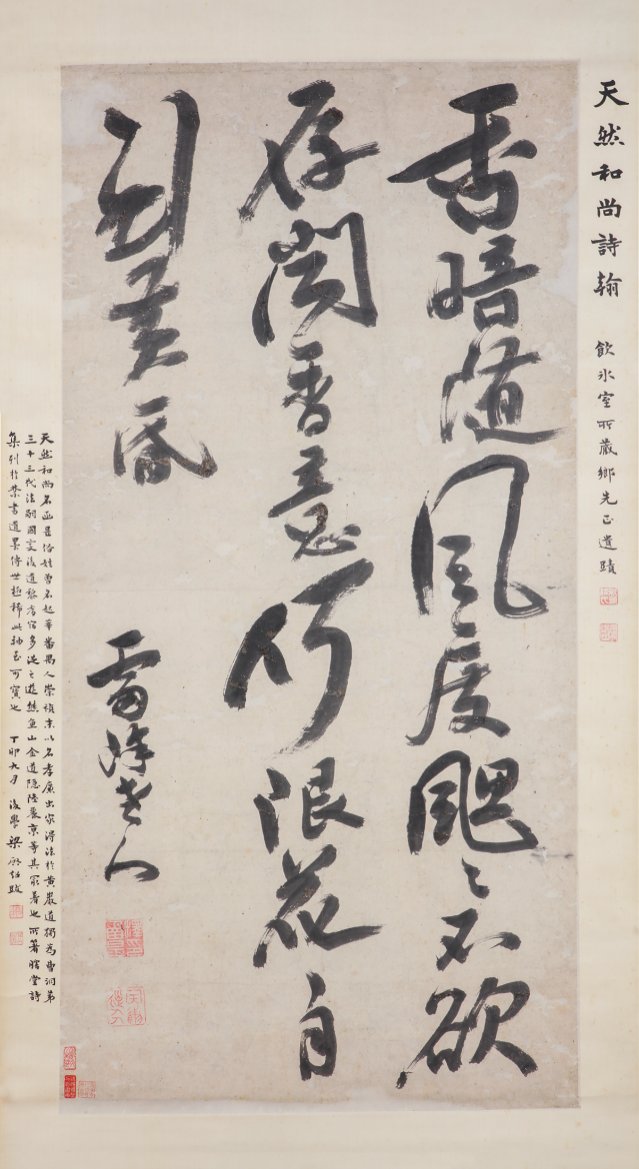 天然和尚詩翰 飲冰室所藏鄉先正遺蹟
香暗随風度颸〻不欲
存香意何限花自
到黃昏
雷峰老人
天然和尚名函昰俗姓曾名起莘番禺人崇禎末以名孝廉出家得法於黃巖道獨為曹洞第
三十三代法嗣國變後遺黎耆宿多從之遊熊魚山金道隱陸麗京等其最著也所著瞎堂詩
集列於禁書道墨傳世極稀此軸至可寶也 丁卯九月 後學梁啟超跋